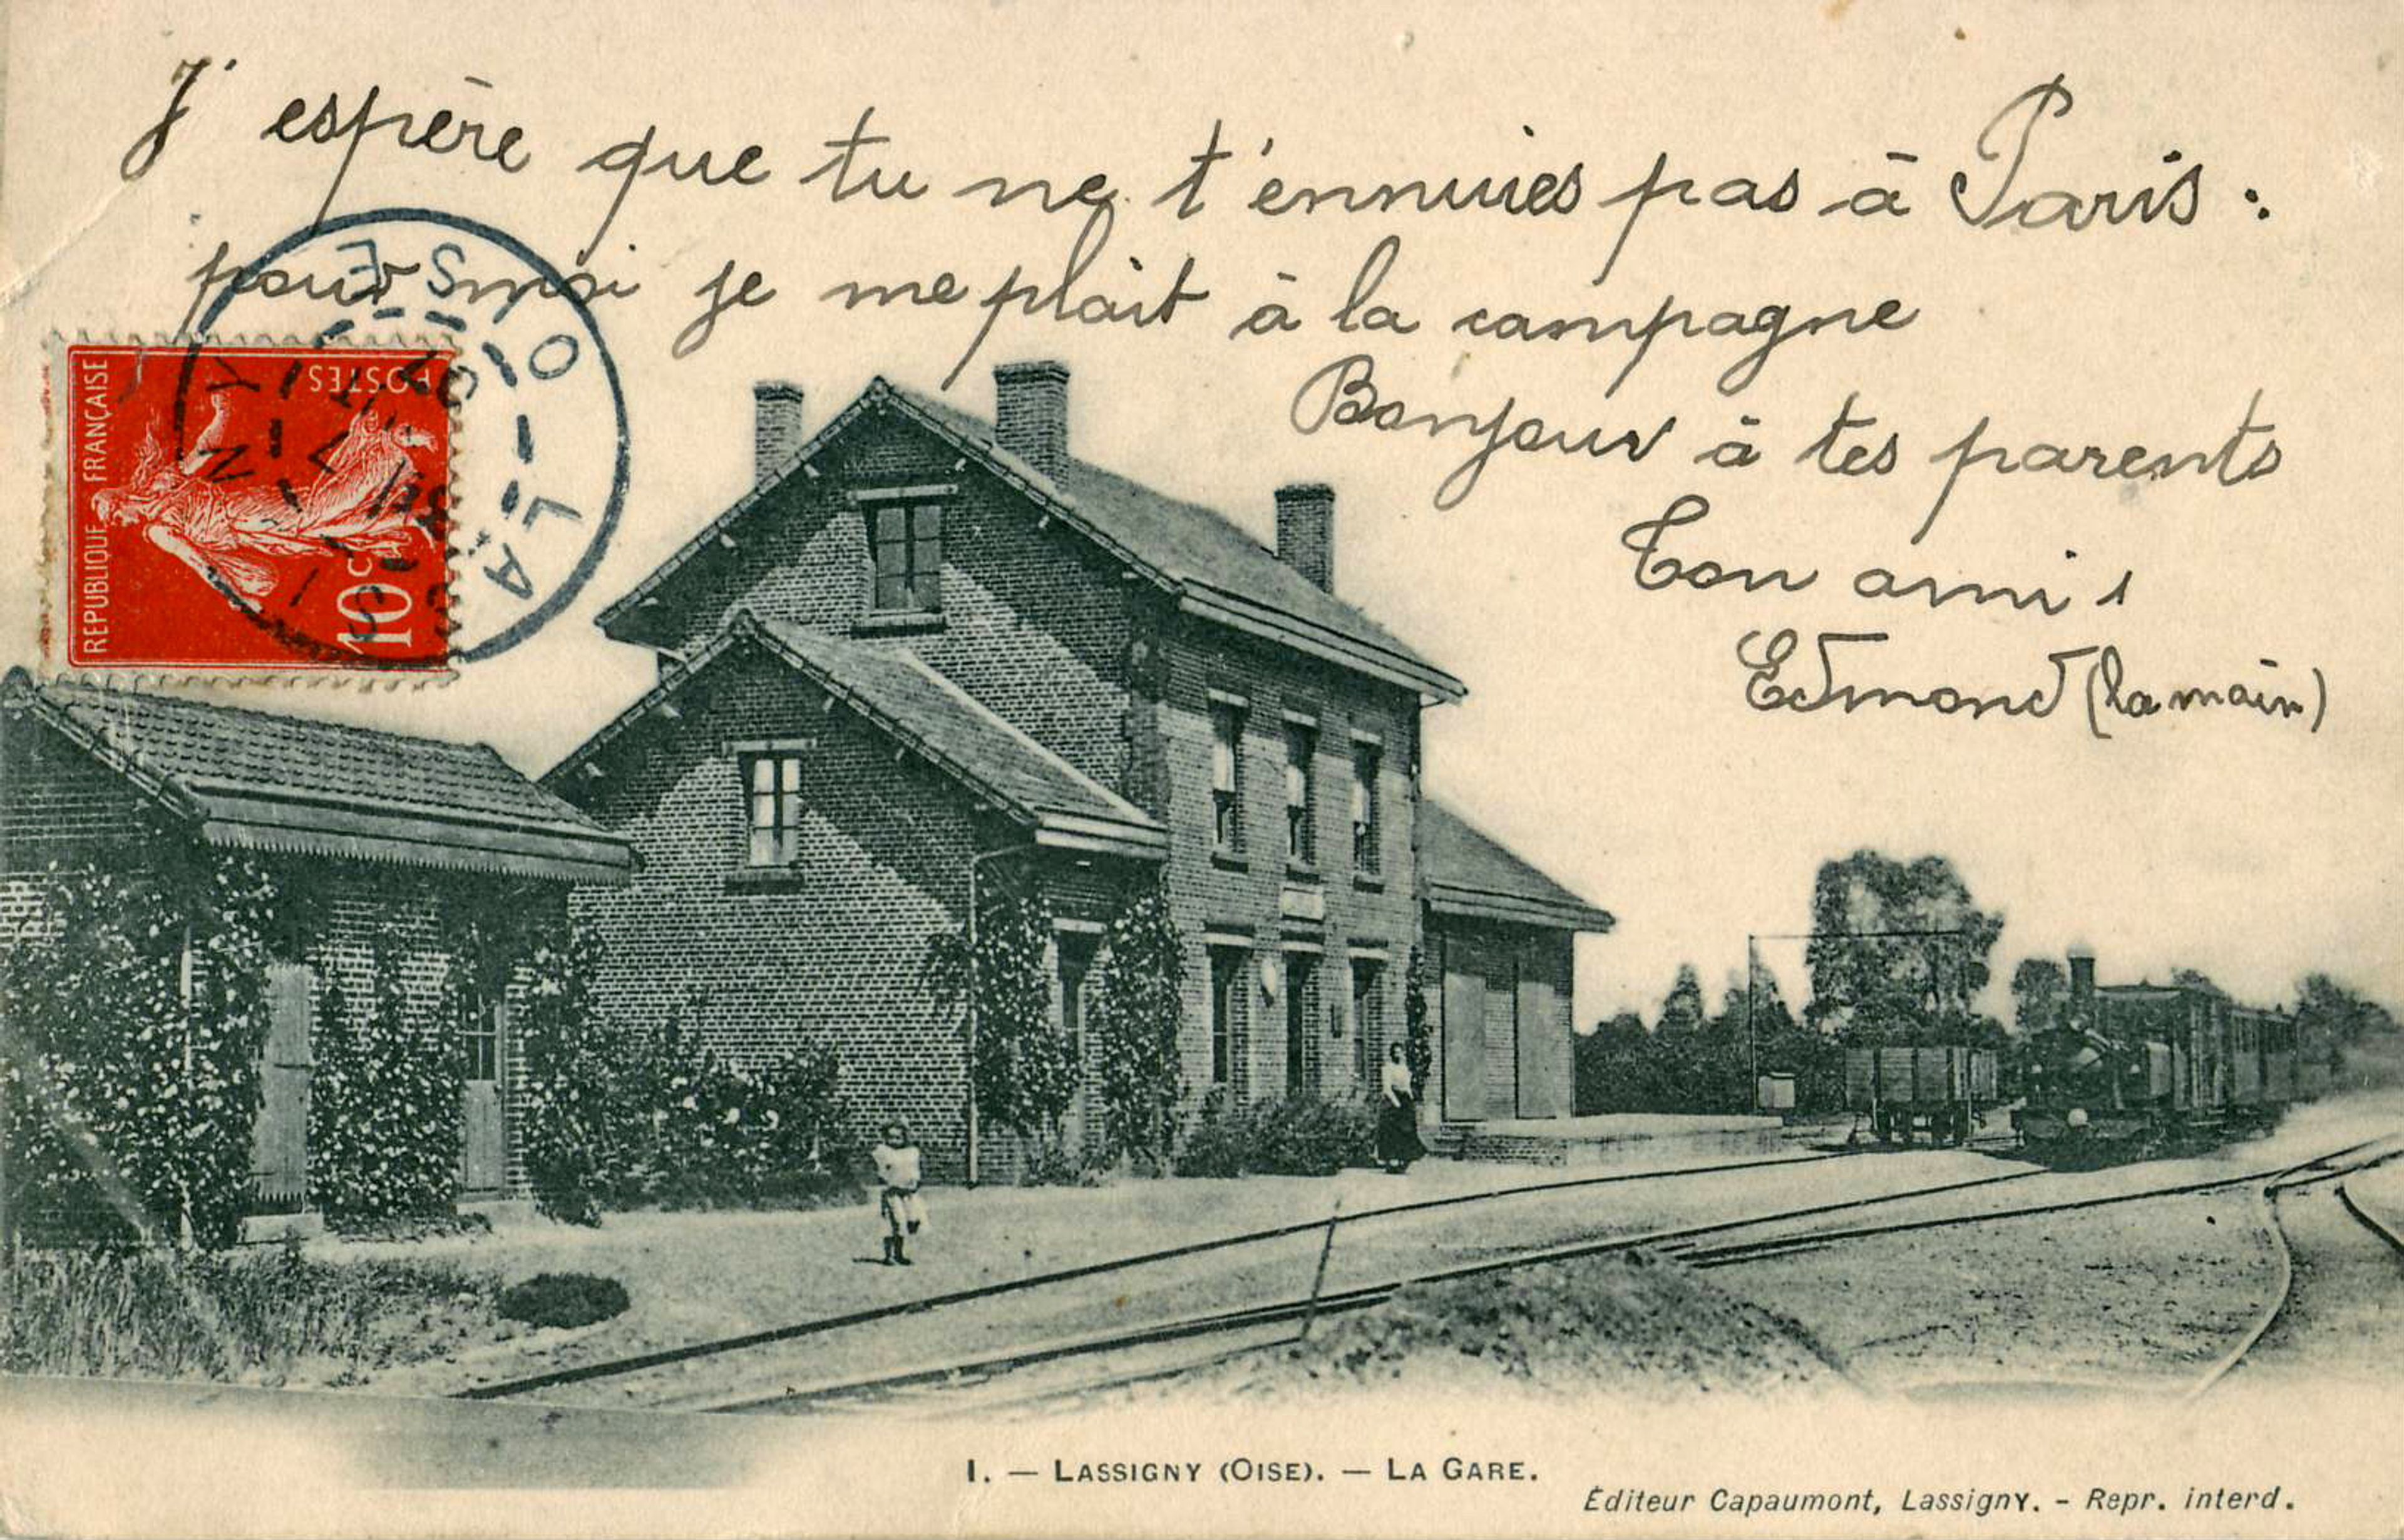 J'espère que tu ne t'ennuies pas à Paris :
pour moi je me plait à la campagne
Bonjour à tes parents
Ton ami
Edmond (la main)
REPUBLIQUE FRANÇAISE
POSTES
10 c
LASSIGNY
OISE
1. — LASSIGNY (OISE). — LA GARE.
Éditeur Capaumont, Lassigny. - Repr. interd.